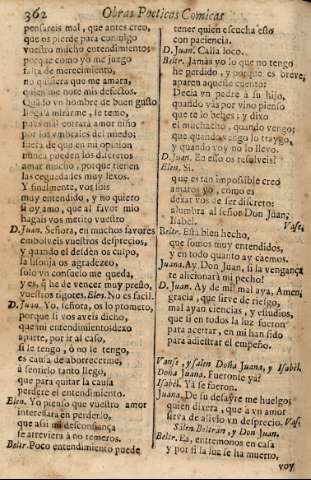 362 Obras Poeticas Comicas
pensareis mal, que antes creo,
que os pierde para consuigo
vuestro mucho entendimiento;
porque como yo me juzgo
falta de merecimiento,
no quisiera que me amara,
quien me note mis defectos.
Quãdo vn hombre de buen gusto
llega à mirarme, le temo,
pues mal entrarà amor niño
por los vmbrales del miedo:
fuera de que en mi opinion
nunca pueden los discretos
amar mucho, porque tienen
las ceguedades muy lexos.
Y finalmente, vos sois
muy entendido, y no quiero
si oy amo, que al favor mio
hagais vos metito vuestro
D. Juan. Señora, en muchos favores
embolveis vuestros desprecios,
y quando el desden os culpo,
la lisonja os agradezco:
solo vn consuelo me queda,
y es, q̃ he de vencer muy presto,
vuestros rigores. Elen. No es facil.
D. Juan. Yo, señora, os lo prometo,
porque si vos aveis dicho,
que mi entendimiento dexo
aparte, por ir al caso,
si le tengo, ò no le tengo,
es causa de aborrecerme,
à sentirlo tanto llego,
que para quitar la causa
perdere el entendimiento.
Elen. Yo pienso que vuestro amor
interessàra en perderlo,
que assi mi desconfiança
se atreviera à no temeros.
Beltr. Poco entendimiento puede
tener quien escucha esto
con paciencia.
D. Juan. Calla loco.
Beltr. Jamàs yo lo que no tengo
he perdido, y porque es breve,
aparen aqueste cuento:
Decia vn padre à su hijo,
quando vàs por vino pienso
que te lo bebes; y dixo
el muchacho, quando vengo;
que quando vengo lo traygo,
y quando voy no lo llevo.
D. Juan. En esso os resolveis?
Elen. Si.
que es tan impossible creo
amaros yo, como es
dexar vos de ser discreto:
alumbra al señor Don Jũan;
Isabèl. Vase.
Beltr. Està bien hecho,
que somos muy entendidos,
y en todo quanto ay caemos.
Juana. Ay, Don Juan, si la vengança
te aficionàra mi pecho!
D. Juan. Ay de mi! mal aya, Amen,
gracia, que sirve de riesgo,
mal ayan ciencias, y estudios,
que si en todos la luz fueron
para acertar, en mi han sido
para adiestrar el empeño.
Vanse, y salen Doña Juana, y Isabèl.
Doña Juana. Fueronse yà?
Isabèl. Yà se fueron.
Juana. De su desayre me huelgo;
quien dixera, que à vn amor
sirva de alivio vn desprecio. Vas.
Salen Beltran, y Don Juan.
Beltr. Ea, entremonos en casa
y por si la luz se ha muerto,
voy